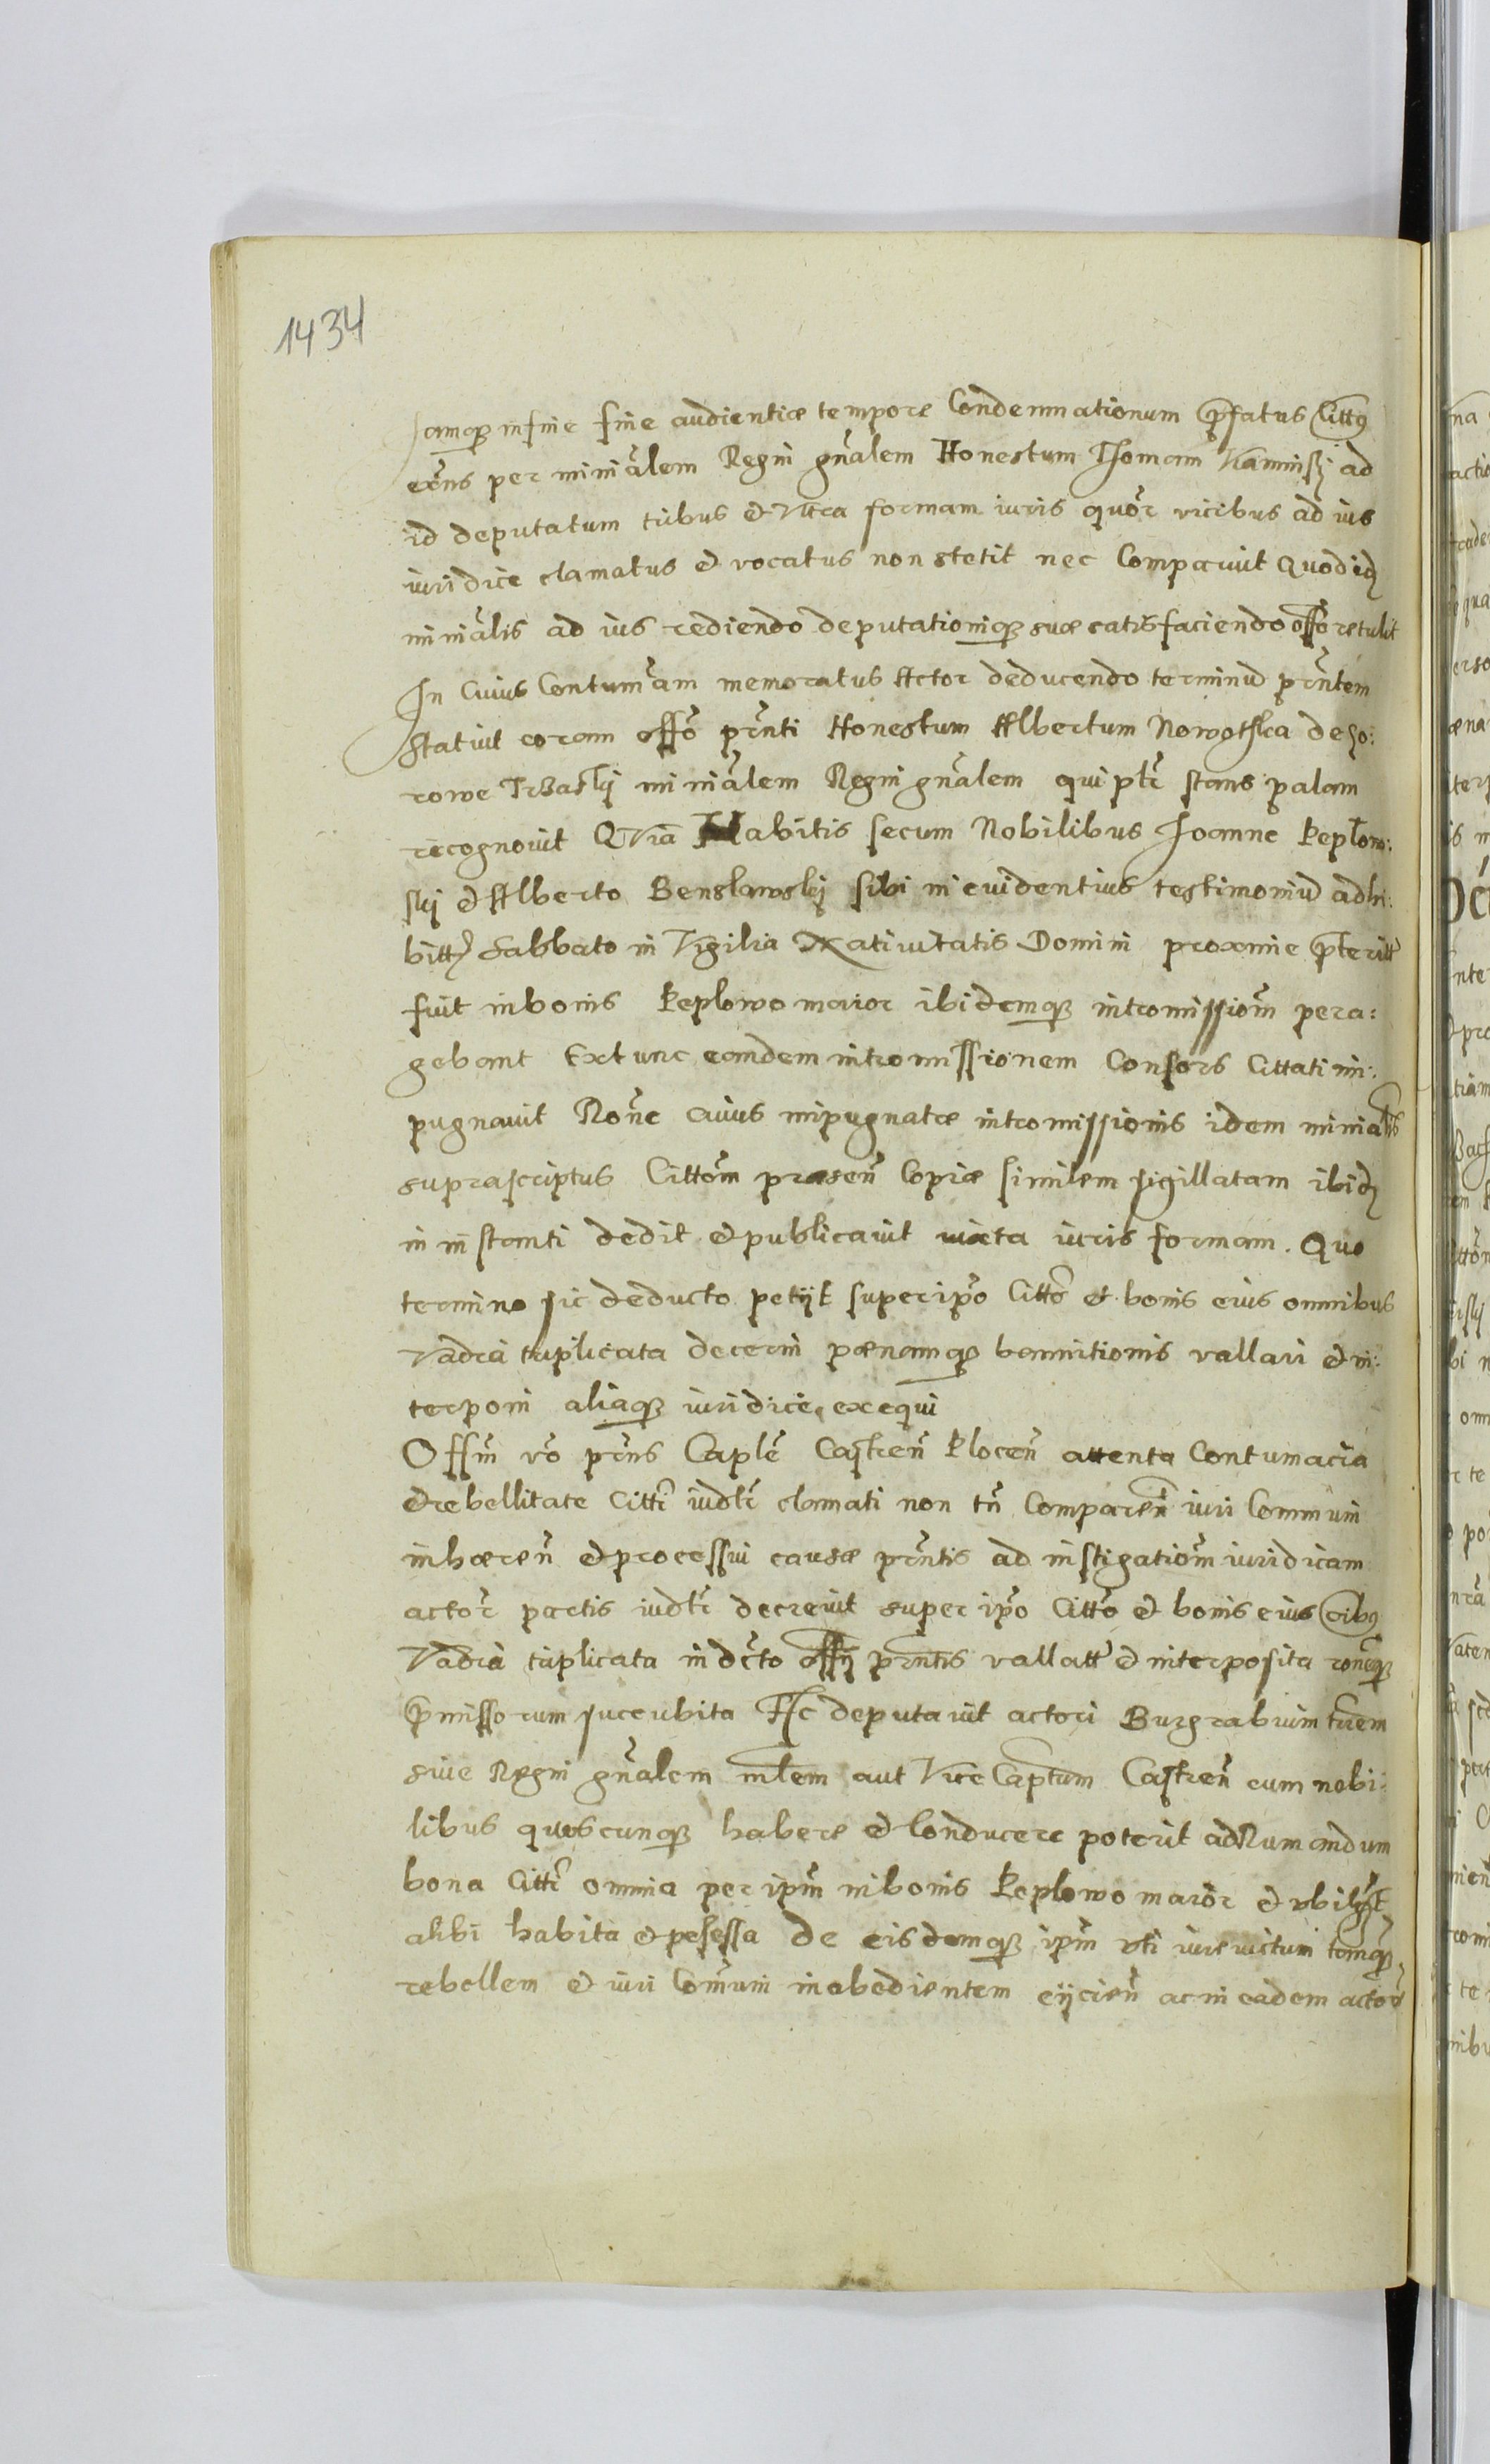 1434
Jamq3 in fine fine audientiæ tempore Condemnationum p̃fatus Citt9
exñs per miniãlem Regni gñalem Honestum Thomam Kaminskj ad
id deputatum tribus et Vltra formam iuris quõr vicibus ad ius
iuridice clamatus et vocatus non stetit nec Comparuit Quod idẽ
miniãlis ad ius rediendo deputationiq3 suæ satisfaciendo offõ retulit
In Cuius Contumãam memoratus Actor deducendo terminũ prñtem
statuit coram offõ prñti Honestum Albertum Nowothka de
rowe miniãlem Regni gñalem qui pltr̃ stans palam
recognouit Quia Habitis secum Nobilibus Joanne Keplow:
skj et Alberto Benslawskj sibi in euidentius testimoniũ adhi:
bitt Sabbato in Vigilia Natiuitatis Domini proxime p̃teritt
fuit in bonis Keplowo maior ibidemq3 intromissiom̃ pera:
gebant Extunc eandem intromissionem Consors Cittati im:
pugnauit Roñe cuius impugnatæ intromissionis idem minialis
suprascriptus Cittom̃ præseñ Copiæ similem sigillatam ibidẽ
in instanti dedit et publicauit iuxta iuris formam. Quo
termino sic deducto petijt super ip̃o Citto et bonis eius omnibus
Vadia triplicata decerni pænamq3 bannitionis vallari et in:
terponi aliaq3 iuridice exequi
Offm̃ vo prñs Caplẽ Castreñ Ploceñ attenta Contumacia
et rebellitate Citti iudtr̃ clamati non tñ Compareñ iuri Communi
inhæreñ et processui causæ prñtis ad instigatiom̃ iuridicam
actor̃ partis iudtr̃ decreuit super ip̃o Citto et bonis eius oib9
Vadia triplicata in dcto offij prñtis vallatt et interposita roneq3
p̃missorum succubita Ac deputauit actori Burgrabium trem
siue Regni gñalem mlem aut Vice Captum Castreñ cum nobi:
libus quoscunq3 habere et Conducere poterit ad Rumandum
bona Citti omnia per ipm̃ in bonis Keplowo maior et vbilgt
alibi habita et possessa de eisdemq3 ipm̃ vti iure victum tamq3
rebellem et iuri Com̃uni inobedientem eijcieñ ac in eadem actor̃